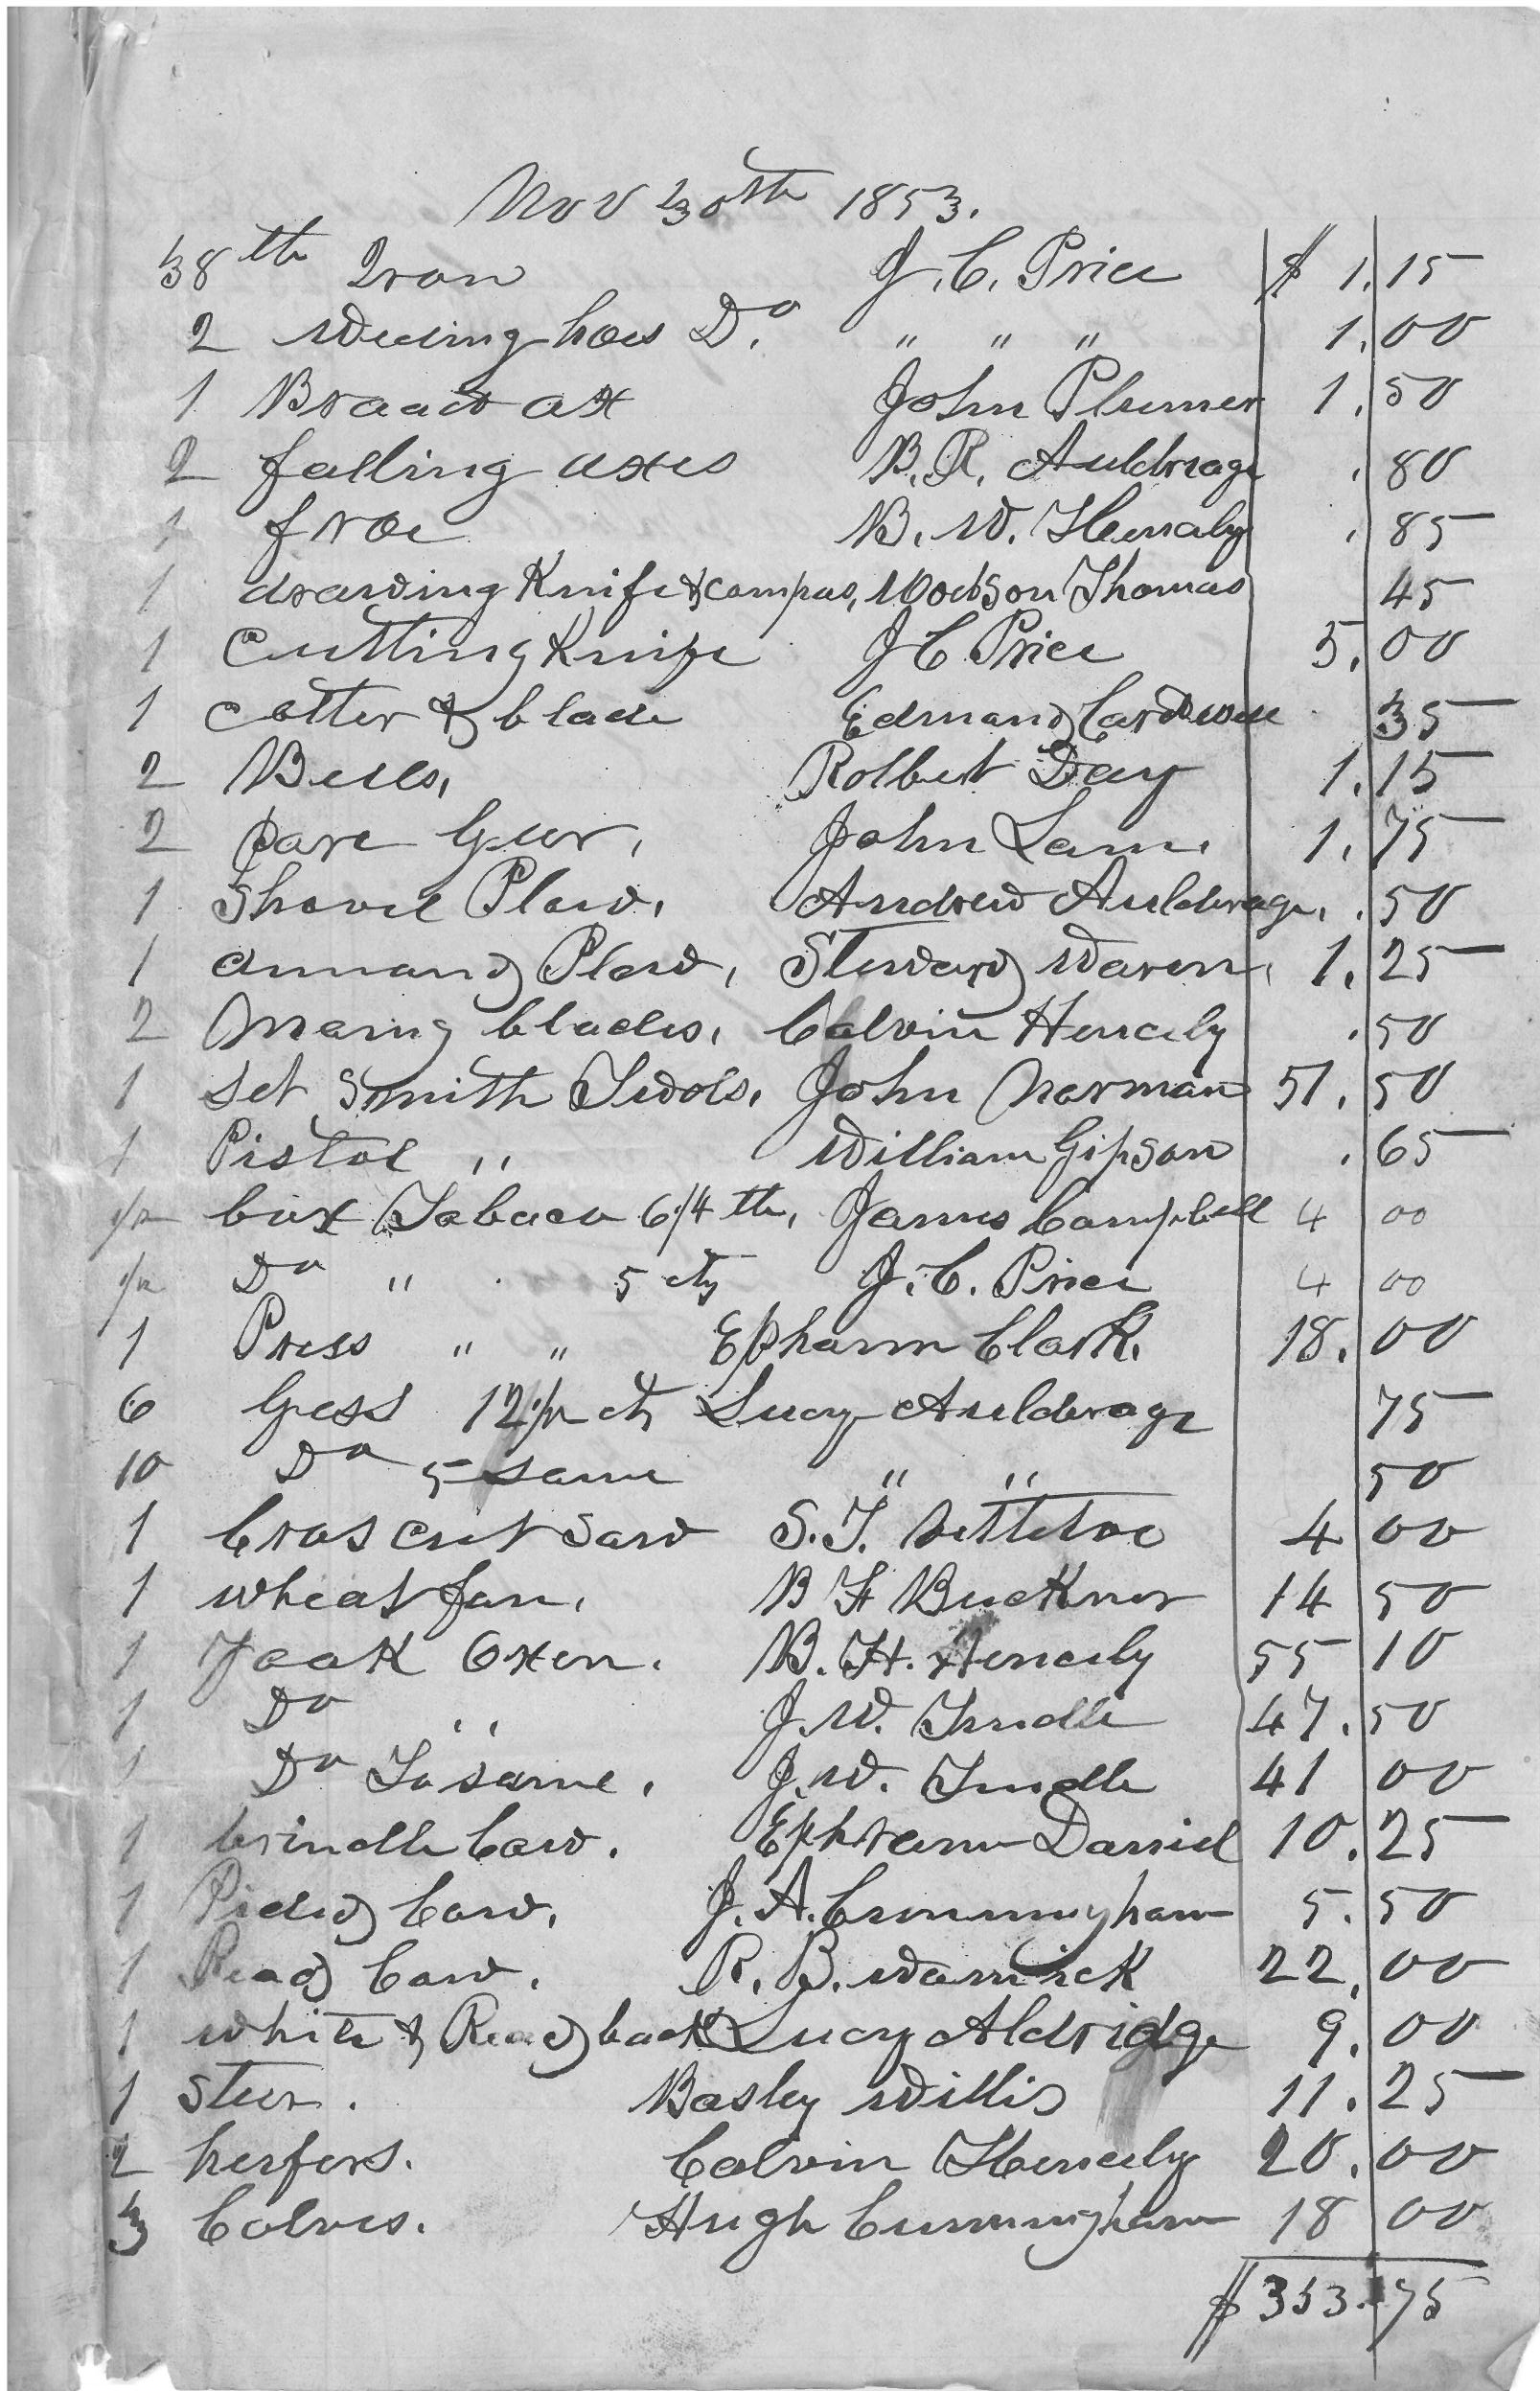 Nov 30th 1853.
38 th Iron J. C. Price $ 1.15
2 Weeing hoes Do. " " " 1.00
1 Broad ax John Plumer 1.50
2 falling axes B. R. Auldrage .80
1 froe B. W. Henaly .85
1 drawing Knife & compas, Wodson Thomas 45
1 Cutting Knife J C Price 5.00
1 cotter & blade Edmand Cardwell 35
2 Bells, Rolbert Day 1.15
2 pare Geer, John Lam. 1.75
1 Shovel Plow, Andrew Aulderage, .50
1 Plow, Steward Waren, 1.25
2 blades, Calvin Henely .50
1 Set Smith Twols, John Norman 51.50
1 Pistol " William Gipson .65
1/2 box Tobaco 6/4 th, James Campbell 4 00
1/2 Do " 5 cts J. C. Price 4 00
1 Press " " Epharm Clark, 18.00
6 Gess 12 1/2 cts Lucy Aulderage 75
10 Do 5 same " " 50
1 Cros cut Saw S. T. 4 00
1 wheat fan, B F Bucknor 14 50
1 Yoak Oxen. B. H. Henely 55 10
1 Do " J. W. Tindle 47.50
1 Do To same, J. W. Tindle 41 00
1 brindle Cow. Ephram Daniel 10.25
1 Pided Cow, J. A. Cunningham 5.50
1 Read Cow. R. B. Warrick 22.00
1 white & Read back Lucy Aldridge 9.00
1 Steer. Basley Willis 11.25
2 heifers. Calvin Henely 20.00
3 Calves. Hugh Cunningham 18 00
$ 353.75